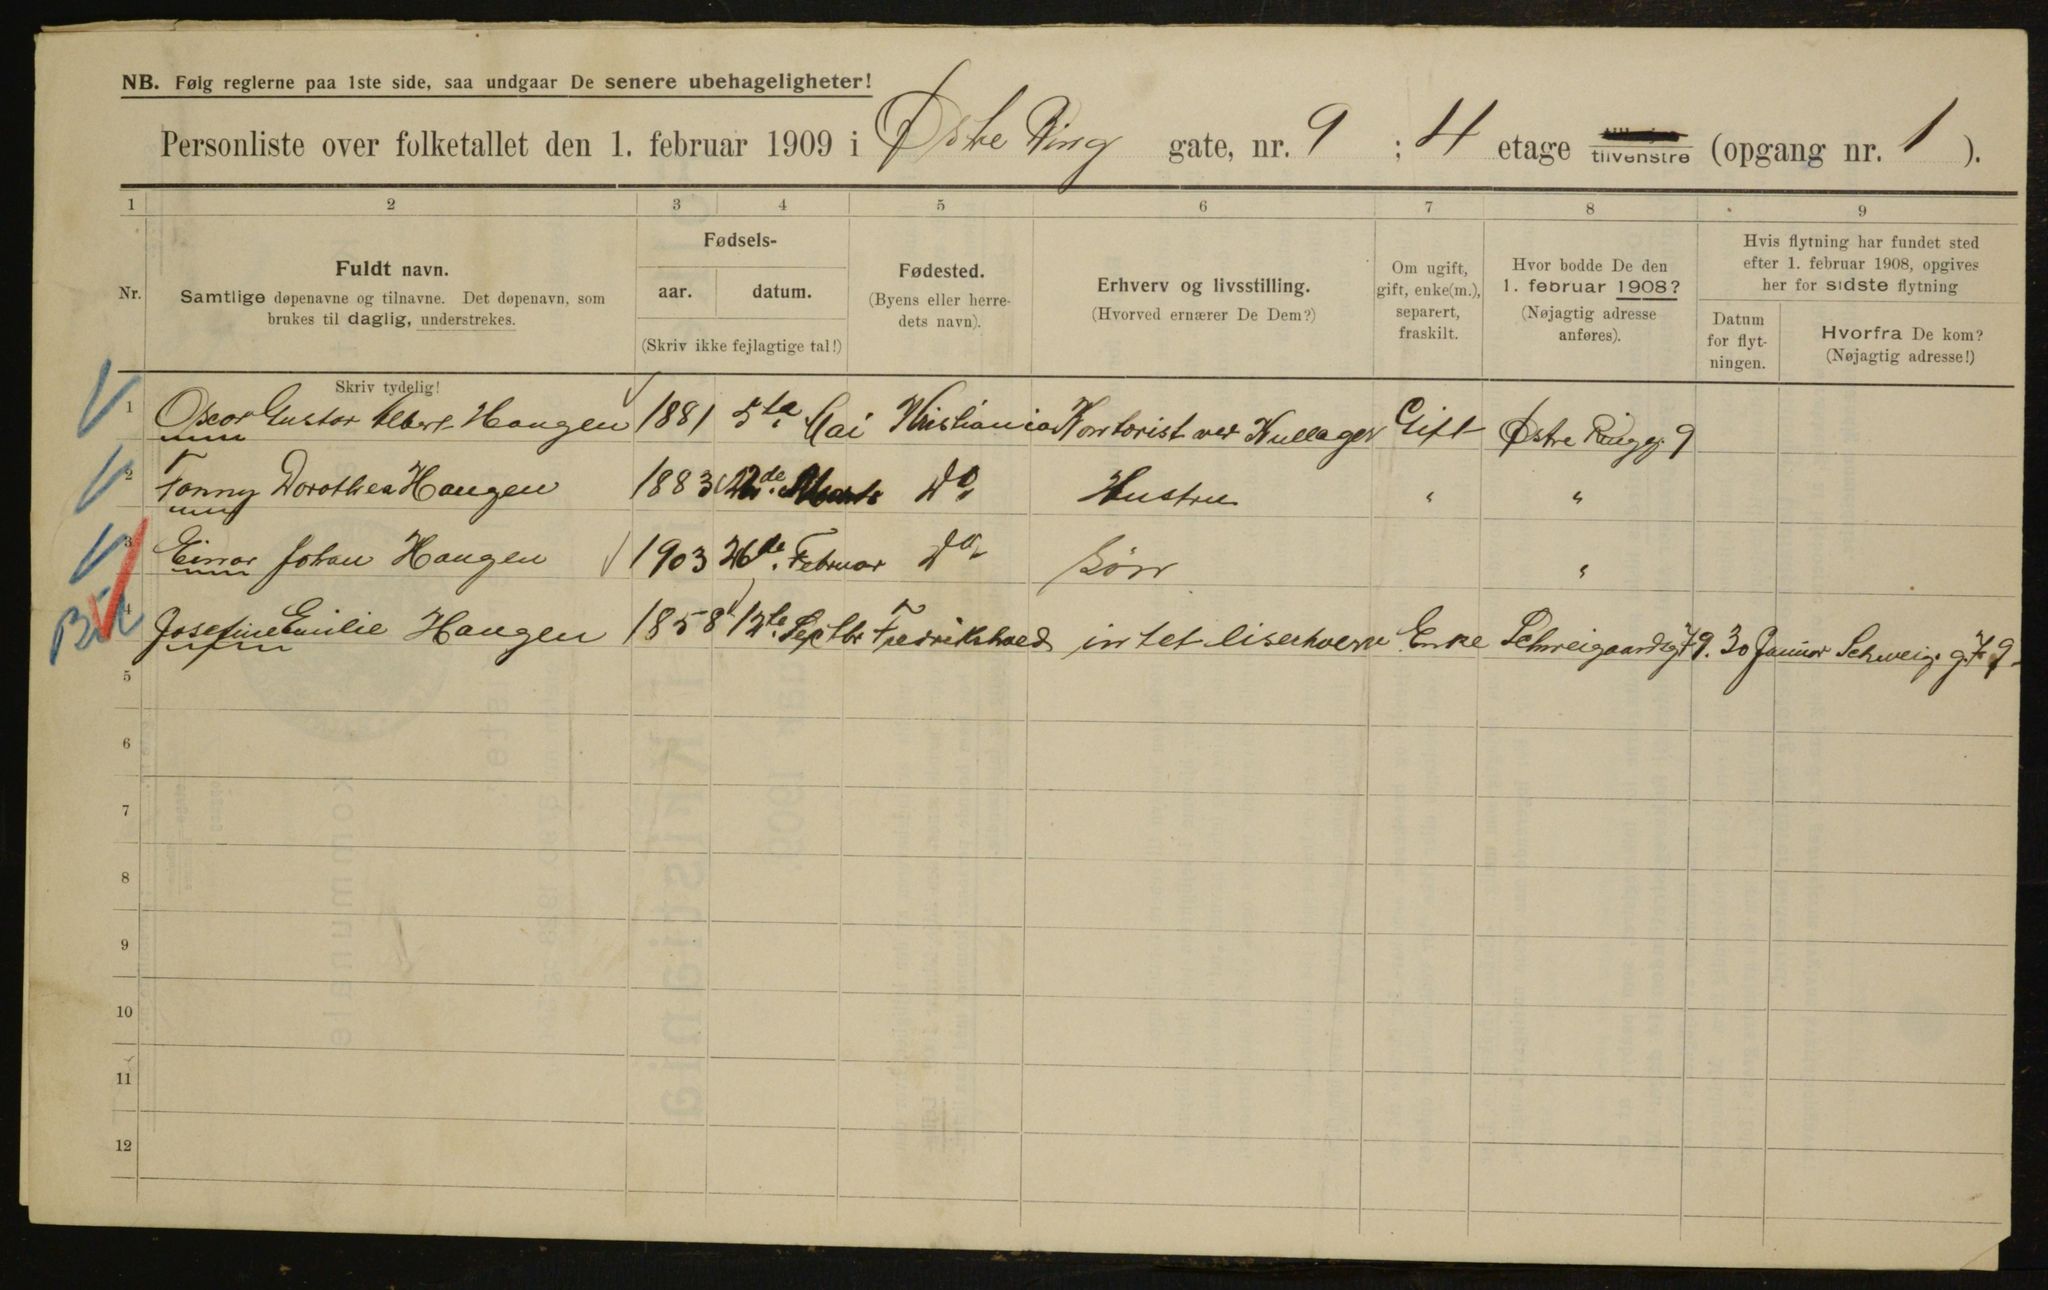 NB. Følg reglerne paa 1ste side, saa undgaar De senere ubehageligheter!
Personliste over folketallet den 1. februar 1909 i Østre Ring gate, nr. 9 ; 4 etage tilvenstre (opgang nr. 1 ).
1 2 3 4 5 6 7 8 9
Nr.
Fuldt navn.
Samtlige døpenavne og tilnavne. Det døpenavn, som
brukes til daglig, understrekes.
Skriv tydelig!
Fødsels-
aar. datum.
(Skriv ikke fejlagtige tal!)
Fødested.
(Byens eller herre-
dets navn).
Erhverv og livsstilling.
(Hvorved ernærer De Dem?)
Om ugift,
gift, enke(m.),
separert,
fraskilt.
Hvor bodde De den
1. februar 1908?
(Nøjagtig adresse
anføres).
Hvis flytning har fundet sted
efter 1. februar 1908, opgives
her for sidste flytning
Datum
for flyt-
ningen.
Hvorfra De kom?
(Nøjagtig adresse!)
1 Oscar Gustav Albert Haugen 1881 5te Mai Kristiania Kontorist ved Kullager Gift Østre Ringg. 9
2 Fanny Dorothea Haugen 1883 Marts Do Hustru " "
3 Einar Johan Haugen 1903 26de Februar Do Sön "
4 Josefine Emilie Haugen 1858 12te Septbr Fredrikshved intet Enke Schweigaardsg. 79. 30 Januar Schweig. g. 79
5
6
7
8
9
10
11
12